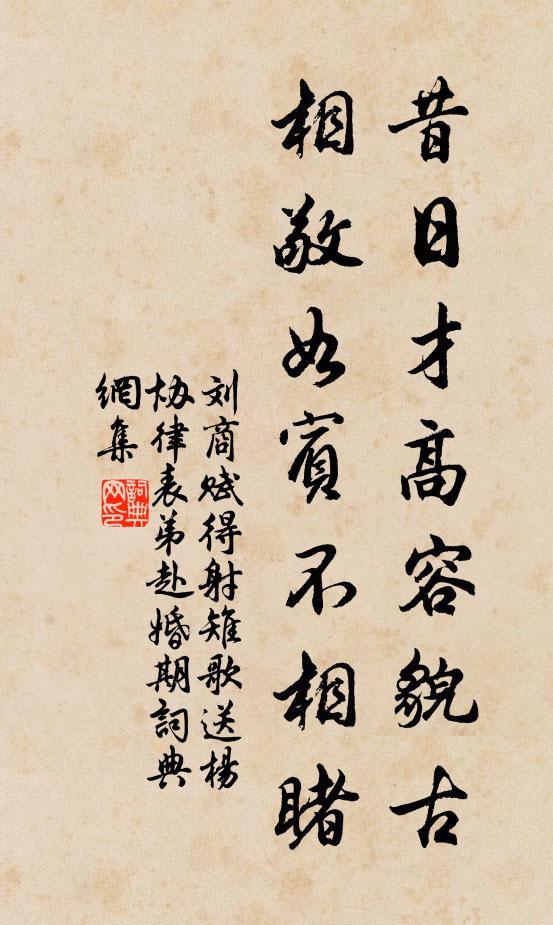 昔日才高容貌古
相敬如賓不相睹
刘商赋得射雉歌送楊
协律表弟赴婚期詞典
網集
詞典網印